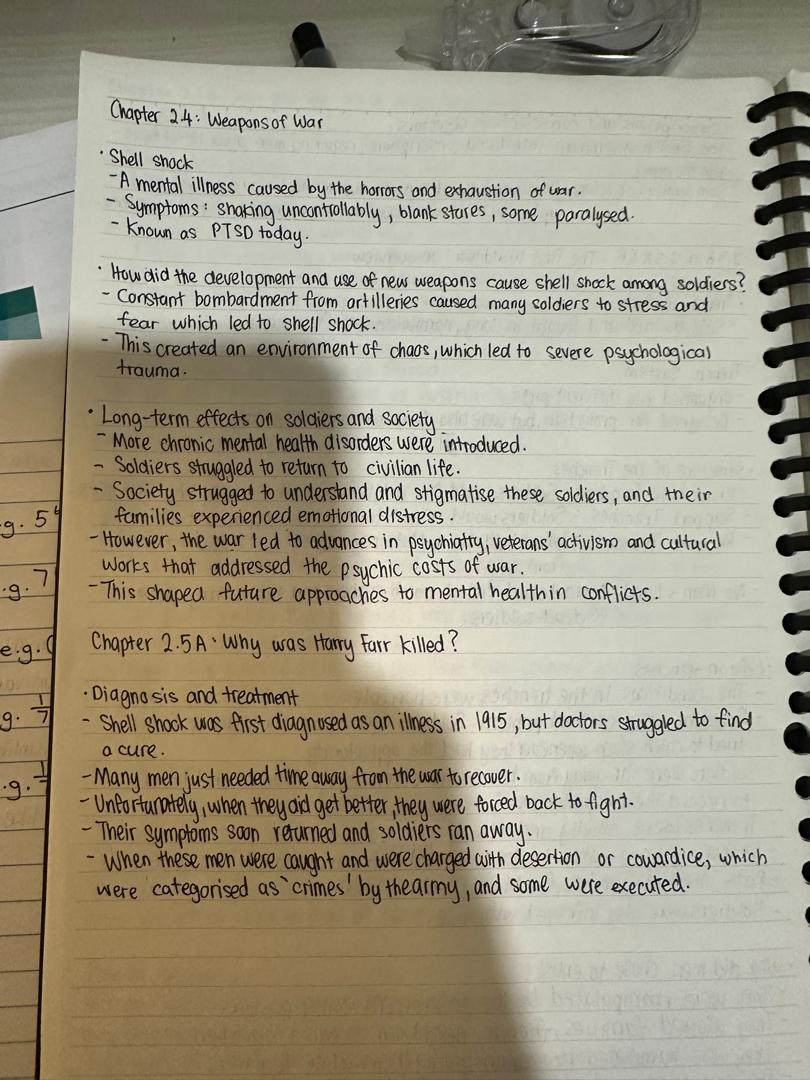 Chapter 2.4: Weapons of War
• Shell shock
- A mental illness caused by the horrors and exhaustion of war.
- Symptoms: shaking uncontrollably, blank stares, some paralysed.
- Known as PTSD today.
• How did the development and use of new weapons cause shell shock among soldiers?
- Constant bombardment from artilleries caused many soldiers to stress and
fear which led to shell shock.
- This created an environment of chaos, which led to severe psychological
trauma.
• Long-term effects on soldiers and society
- More chronic mental health disorders were introduced.
- Soldiers struggled to return to civilian life.
- Society strugged to understand and stigmatise these soldiers, and their
families experienced emotional distress.
- However, the war led to advances in psychiatry, veterans' activism and cultural
works that addressed the psychic costs of war.
- This shaped future approaches to mental health in conflicts.
Chapter 2.5A: Why was Harry Farr killed?
• Diagnosis and treatment
- Shell shock was first diagnosed as an illness in 1915, but doctors struggled to find
a cure.
- Many men just needed time away from the war to recover.
- Unfortunately, when they did get better, they were forced back to fight.
- Their symptoms soon returned and soldiers ran away.
- When these men were caught and were charged with desertion or cowardice, which
were categorised as 'crimes' by the army, and some were executed.
g. 5
.g. 7
e.g.
g. 1/7
.g.